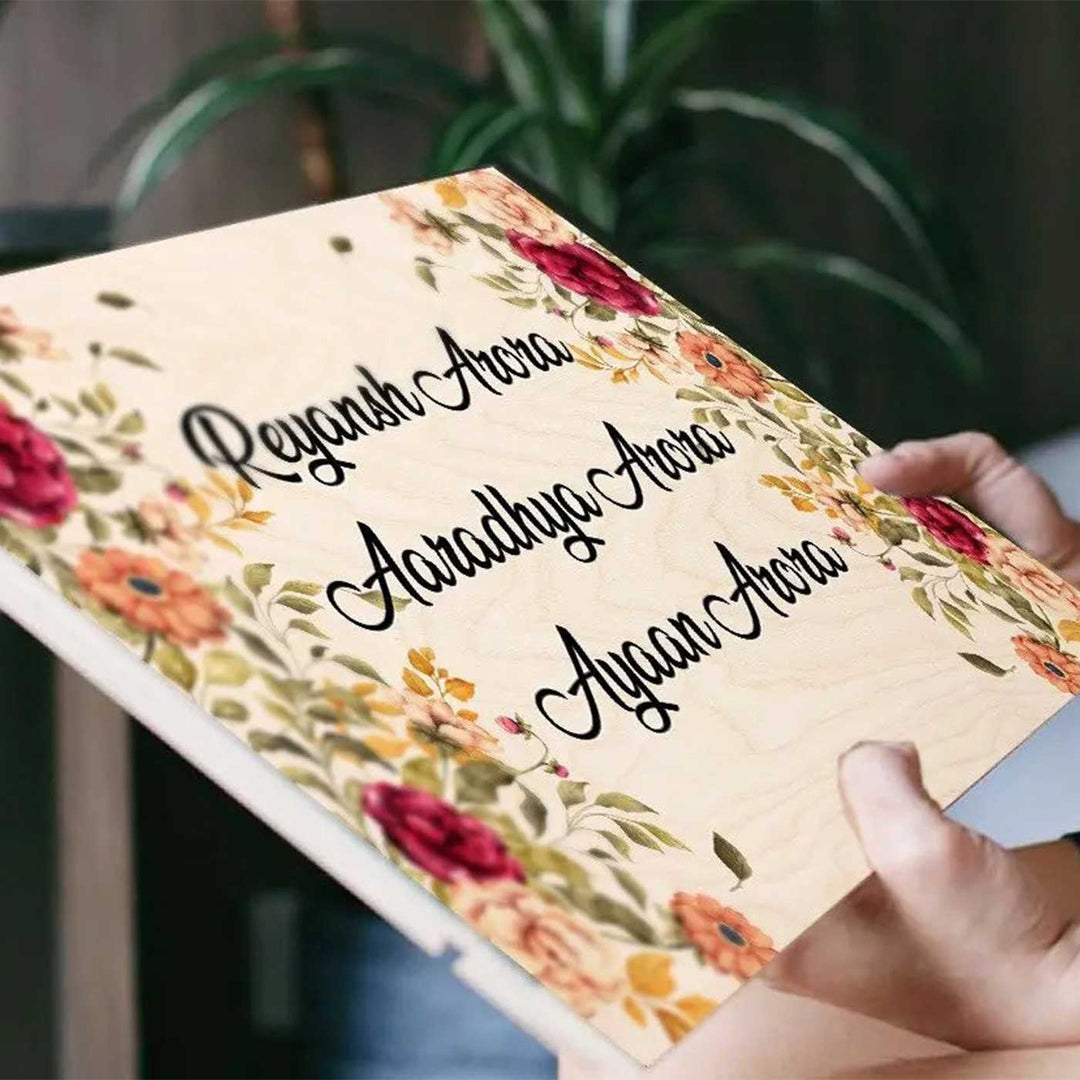 Reyansh Arora
Aaradhya Arora
Ayaan Arora